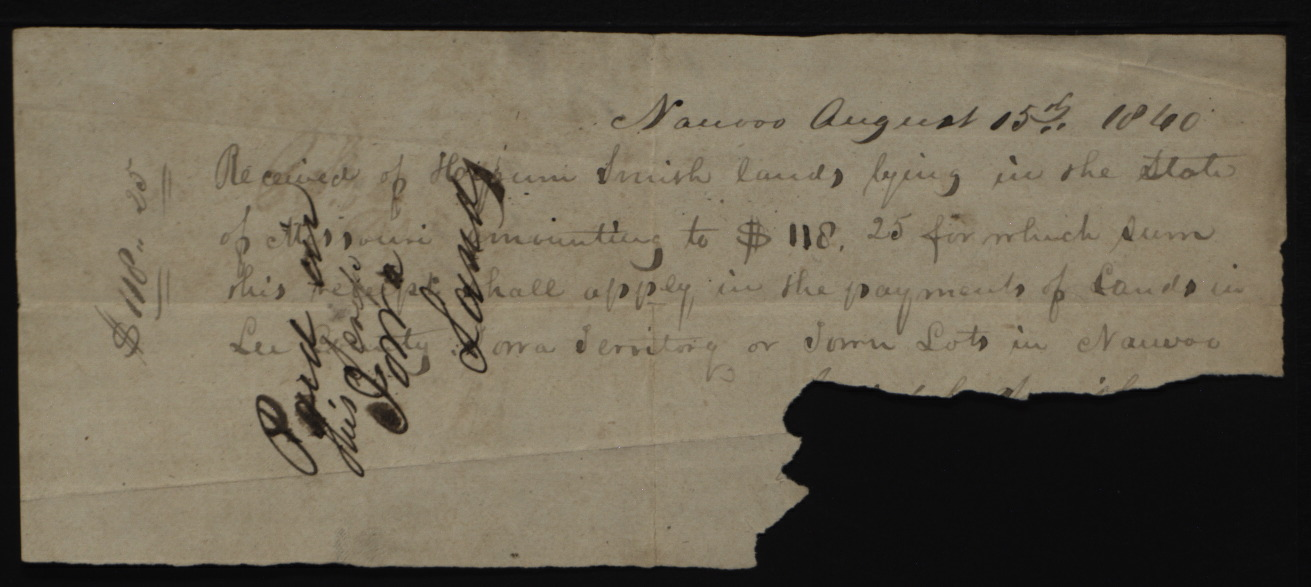 Nauvoo August 15th 1840
Received of Hopkum Smith lands lying in the State
of Missouri amounting to $ 118. 25 for which sum
this receipt shall apply in the payments of Lands in
Lee County Iowa Territory or Town Lots in Nauvoo
$ 118.. 25
Paid on
this
Iowa
Lands